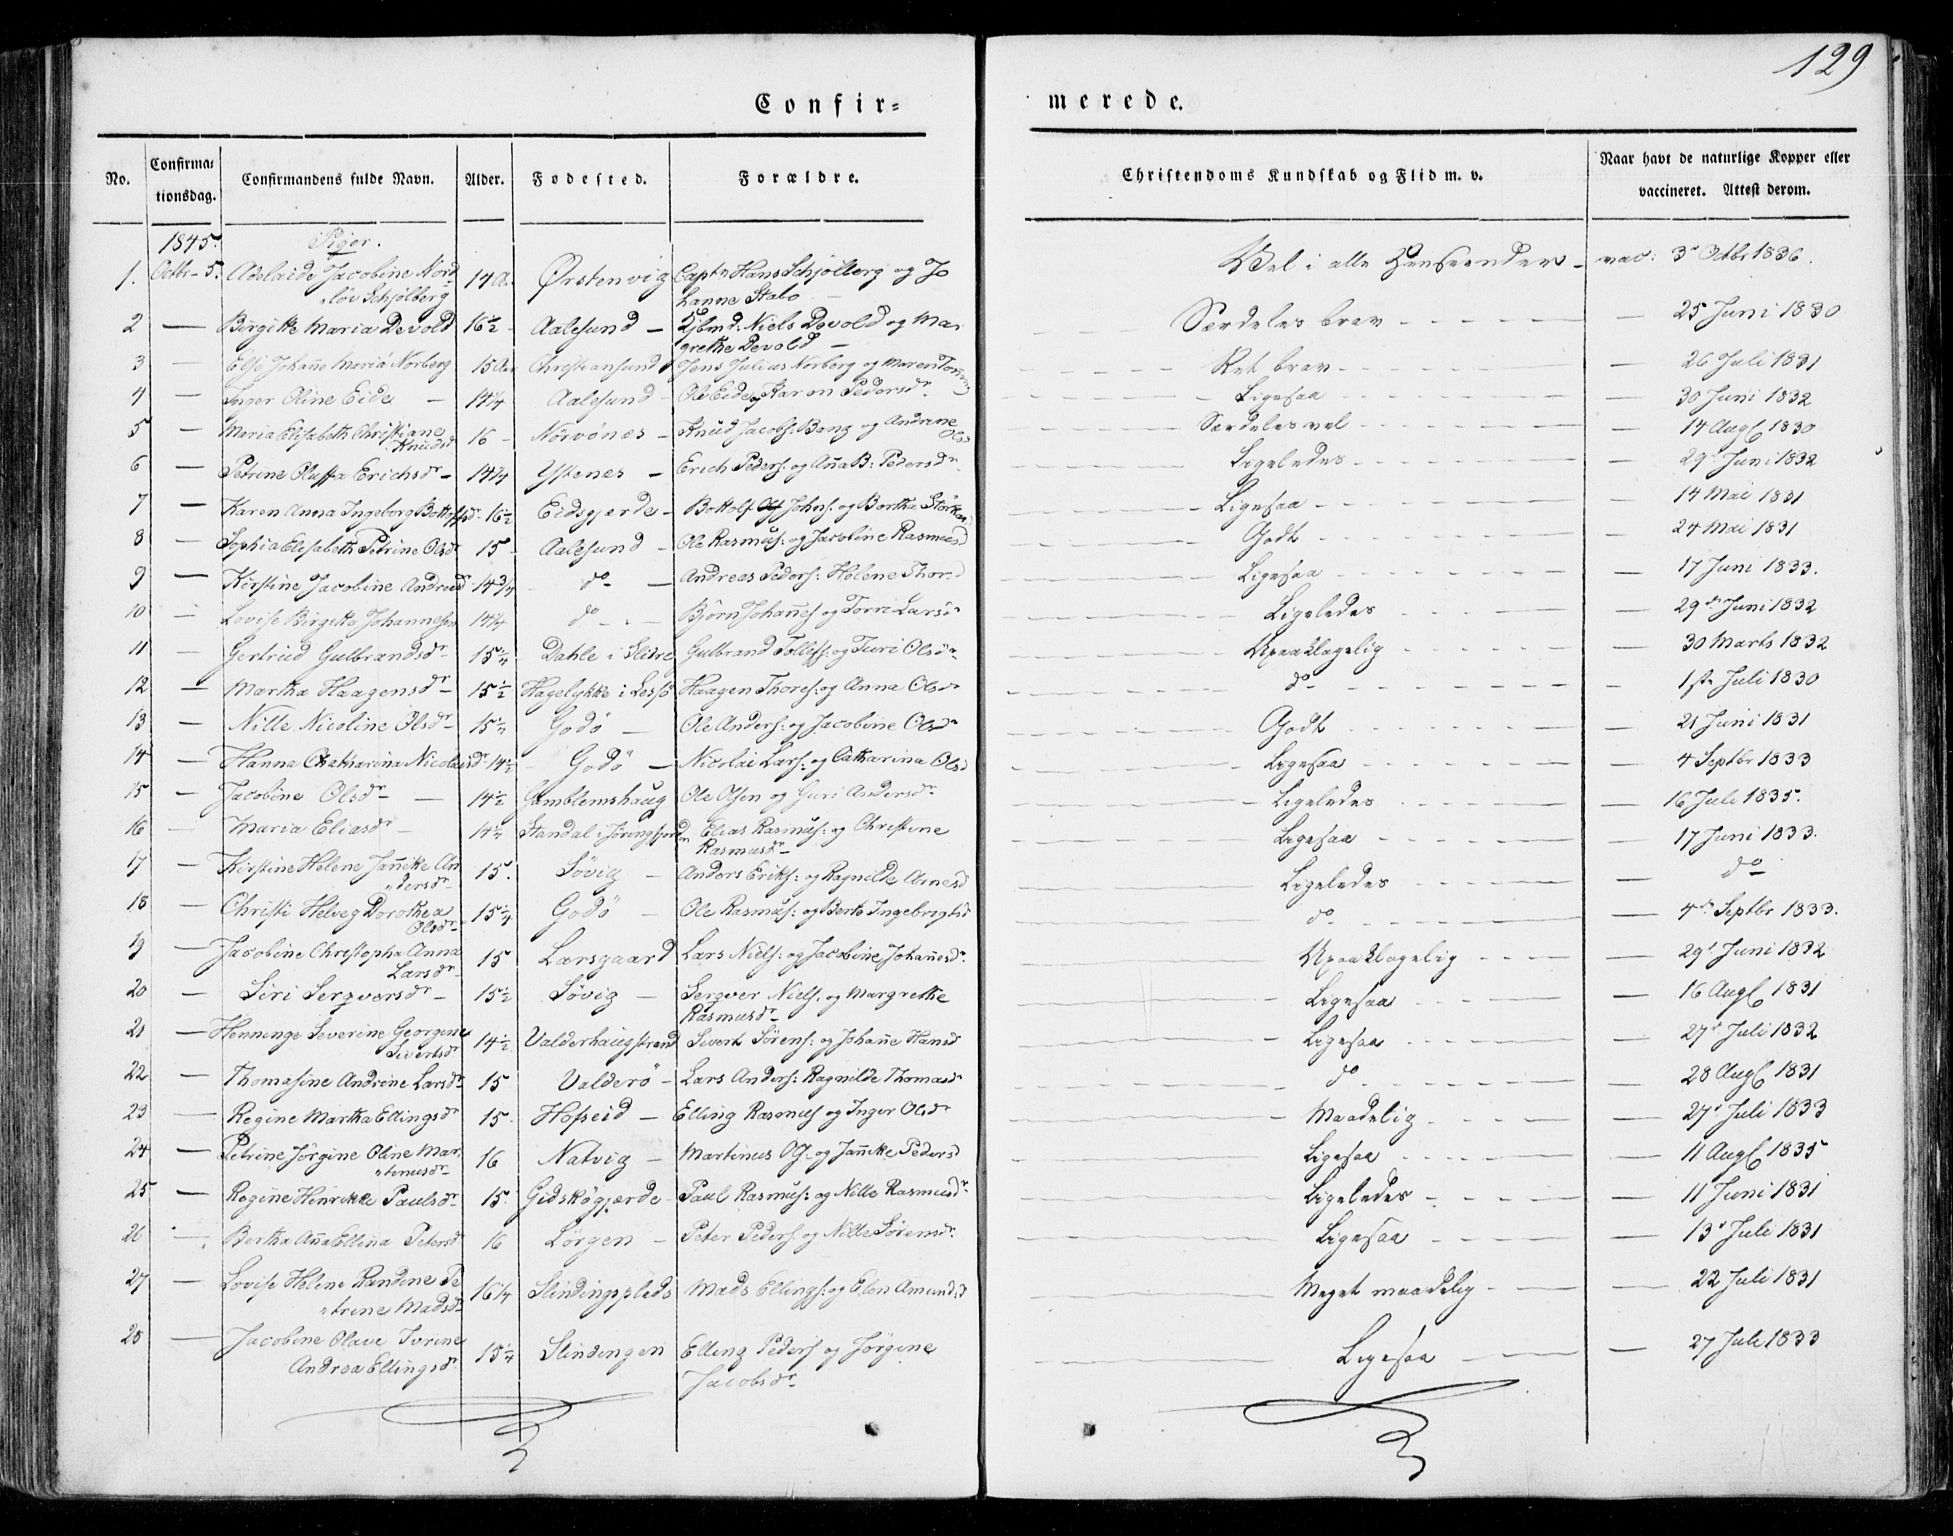 129
Confir=
merede.
No. Confirma-tionsdag. Confirmandens fulde Navn. Alder. Fødested. Forældre. Christendoms Kundskab og Flid m. v. Naar havt de naturlige Kopper eller vaccineret. Attest derom.
1845. Piger.
1. Octbr 5. Adelaide Jacobine Nord- 14 A. Ørstenvig Captn Hans Schjølberg og Jo Vel i alle Henseender - vac: 3 Octbr 1836.
løv Schjølberg hanne Stabo
2 — Birgitte Maria Devold 16½ Aalesund - Kjbmd: Niels Devold og Mar Særdeles brav — 25 Juni 1830
grethe Devold -
3 — Else Johañe Maria Norberg 15 Christiansund Jens Julius Norberg og Maren Ret brav — 26 Juli 1831
4 — Inger Oline Eide — 14¼ Aalesund - Ole Eide og Karen Pedersdr Ligesaa — 30 Juni 1832
5 — Maria Elisabeth Christiane 16 - Nörvönes - Knud Jacobs: og Andrine Særdeles vel — 14 Aug 1830
Knudsd Olsd
6 — Petrine Oluffa Erichsdr - 14¼ Ystenes - Erich Peders: og Aña B: Pedersdr Ligeledes — 29 Juni 1832
7 — Karen Anna Ingeborg 16½ Eidsgjerde - Bottolf Johns: og Bertha Ligesaa — 14 Mai 1831
8 — Sophia Elisabeth Petrine Olsdr 15 - Aalesund - Ole Rasmus: og Jacobine Rasmusd Godt — 24 Mai 1831
9 — Kirstine Jacobine 14¾ do — Andreas Peders: Helene Ligesaa — 17 Juni 1833.
10 — Lovise Birgitte Johannes 14¼ do - Björn Johañes og Larsdr Ligeledes — 29de Juni 1832
11 — Gertrud Gulbrandsdr 15¼ Dahle i Slidre Gulbrand og Turi Olsdr Upaaklagelig — 30 Marts 1832
12 — Martha Haagensdr - 15½ Hagelykke i Lessö Haagen Thores: og Anna Olsdr do — 1ste Juli 1830
13 — Nille Nicoline Olsdr - 15¼ Godö — Ole Anders: og Jacobine Olsd Godt — 21 Juni 1831
14 — Hanna Chatharina 14½ Godö — Nicolai Lars: og Catharina Olsd Ligesaa — 4 Septbr 1833
15 — Jacobine Olsdr — 14½ Gamblemshaug Ole Olsen og Guri Andersdr Ligeledes — 16 Juli 1835.
16 — Maria Eliasdr — 14¼ Standal i Elias Rasmus: og Christine Ligesaa — 17 Juni 1833.
Rasmusdr
17 — Kirstine Helene Jañeke An 15. Sövig — Anders Eriks: og Ragnilde Arnesd Ligeledes — do
dersdr
18 — Christi Helveg Dorothea 15¼ Godö — Ole Rasmus: og Berte Ingebrigtsd do — 4de Septbr 1833.
Olsdr
19 — Jacobine Christopha Anna 15 Larsgaard Lars Niels: og Jacobine Johañesdr Upaaklagelig — 29 Juni 1832
Larsdr
20 — Siri Sergversdr — 15½ Sövig — Sergver Niels. og Margrethe Ligesaa — 16 Aug 1831
Rasmusdr
21 — Henninge Severine Georgine 14½ Valderhaugstrand Sivert Sörens: og Johañe Hansd Ligesaa — 27 Juli 1832
Sivertsdr
22 — Thomasine Andrine Larsdr 15 Valderö - Lars Anders: Ragnilde Thomasdr do — 28 Aug 1831
23 — Regine Martha Ellingsdr 15. Hofseid — Elling Rasmus og Inger Olsdr Maadelig — 27 Juli 1833
24 — Petrine Jörgine Oline Mar 16 Natvig — Martinus Ols: og Jañeke Pedersd Ligesaa — 11 Aug 1835
tinusdr
25 — Regine Henrikke Paulsdr 15. Gidskögjerde - Paul Rasmus: og Nille Rasmusdr Ligeledes — 11 Juni 1831
26 — Bertha Aña Ellina Petersd 16 Lörgen — Peter Peders og Nille Sörensdr Ligesaa — 13 Juli 1831
27 — Lovise Helene Randine Pe 16¼ Slindingsplads Mads Ellings: og Elen Amundsd Meget maadelig — 22 Juli 1831
trine Madsdr
28 — Jacobine Olave Ivrine 15¼ Slindingen Elling Peders og Jörgine Ligesaa — 27 Juli 1833
Andrea Ellingsdr Jacobsdr